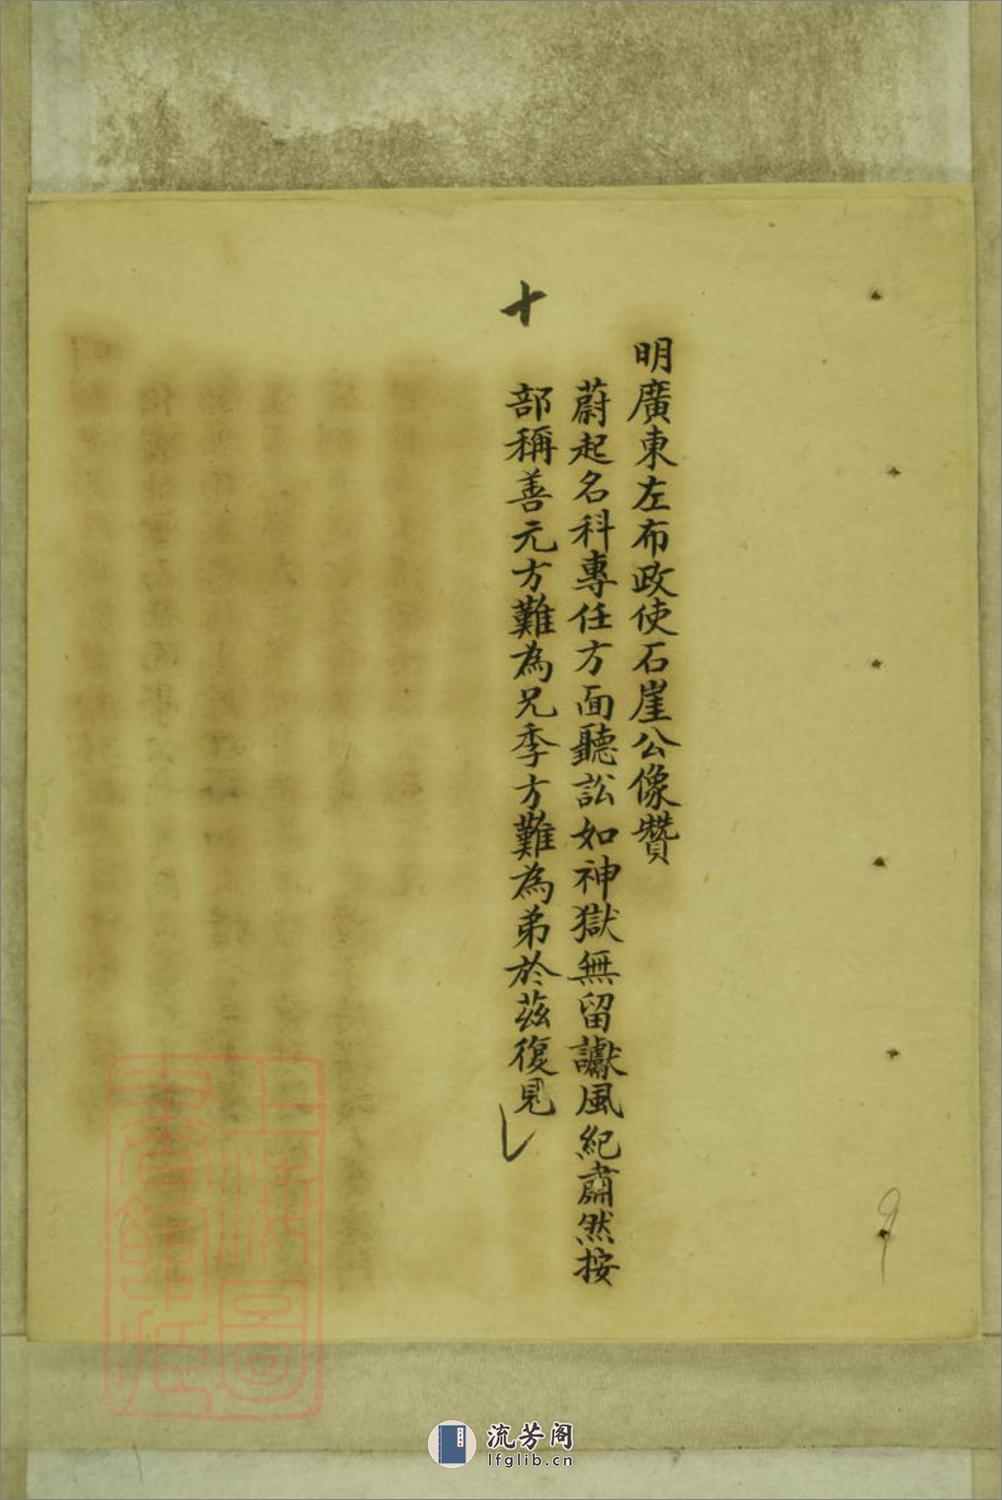 明廣東左布政使石崖公像贊
蔚起名科專任方面聽訟如神獄無留讞風紀肅然按
十
部稱善元方難為兄季方難為弟於茲復見
9
上海圖書館藏
流芳阁
lfglib.cn